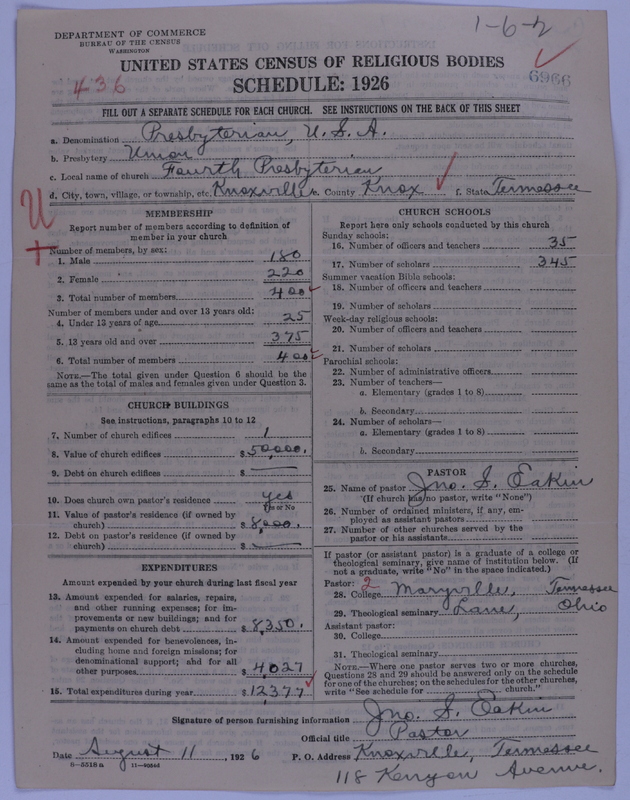 1-6-2
DEPARTMENT OF COMMERCE
BUREAU OF THE CENSUS
WASHINGTON
UNITED STATES CENSUS OF RELIGIOUS BODIES
436
SCHEDULE: 1926
6966
FILL OUT A SEPARATE SCHEDULE FOR EACH CHURCH. SEE INSTRUCTIONS ON THE BACK OF THIS SHEET
a. Denomination Presbyterian, U.S.A.
b. Presbytery Union
c. Local name of church Fourth Presbyterian
d. City, town, village, or township, etc. Knoxville e. County Knox f. State Tennessee
U
MEMBERSHIP
Report number of members according to definition of
member in your church
Number of members, by sex:
1. Male 180
2. Female 220
3. Total number of members 400
Number of members under and over 13 years old:
4. Under 13 years of age 25
5. 13 years old and over 375
6. Total number of members 400
NOTE.—The total given under Question 6 should be
same as the total of males and females given under Question 3.
CHURCH BUILDINGS
See instructions, paragraphs 10 to 12
7. Number of church edifices 1
8. Value of church edifices $50,000.
9. Debt on church edifices $
10. Does church own pastor's residence yes
Yes or No
11. Value of pastor's residence (if owned by
church) $8,000.
12. Debt on pastor's residence (if owned by
church) $
EXPENDITURES
Amount expended by your church during last fiscal year
13. Amount expended for salaries, repairs,
and other running expenses; for im-
provements or new buildings; and for
payments on church debt $8,350.
14. Amount expended for benevolences, in-
cluding home and foreign missions; for
denominational support; and for all
other purposes $4,027
15. Total expenditures during year $12,377
CHURCH SCHOOLS
Report here only schools conducted by this church
Sunday schools:
16. Number of officers and teachers 35
17. Number of scholars 345
Summer vacation Bible schools:
18. Number of officers and teachers
19. Number of scholars
Week-day religious schools:
20. Number of officers and teachers
21. Number of scholars
Parochial schools:
22. Number of administrative officers
23. Number of teachers—
a. Elementary (grades 1 to 8)
b. Secondary
24. Number of scholars—
a. Elementary (grades 1 to 8)
b. Secondary
PASTOR
25. Name of pastor Jno. S. Eakin
(If church has no pastor, write "None")
26. Number of ordained ministers, if any, em-
ployed as assistant pastors
27. Number of other churches served by the
pastor or his assistants
If pastor (or assistant pastor) is a graduate of a college or
theological seminary, give name of institution below. (If
not a graduate, write "No" in the space indicated.)
Pastor: 2
28. College Maryville, Tennessee
29. Theological seminary Lane, Ohio
Assistant pastor:
30. College
31. Theological seminary
NOTE.—Where one pastor serves two or more churches,
Questions 28 and 29 should be answered only on the schedule
for one of the churches; on the schedules for the other churches,
write "See schedule for church."
Signature of person furnishing information Jno. S. Eakin
Official title Pastor
Date August 11, 1926 P. O. Address Knoxville, Tennessee
8—5518 a
118 Kenyon Avenue.